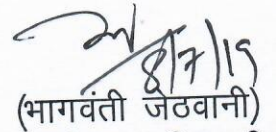 8/7/19
(भागवंती जेठवानी)